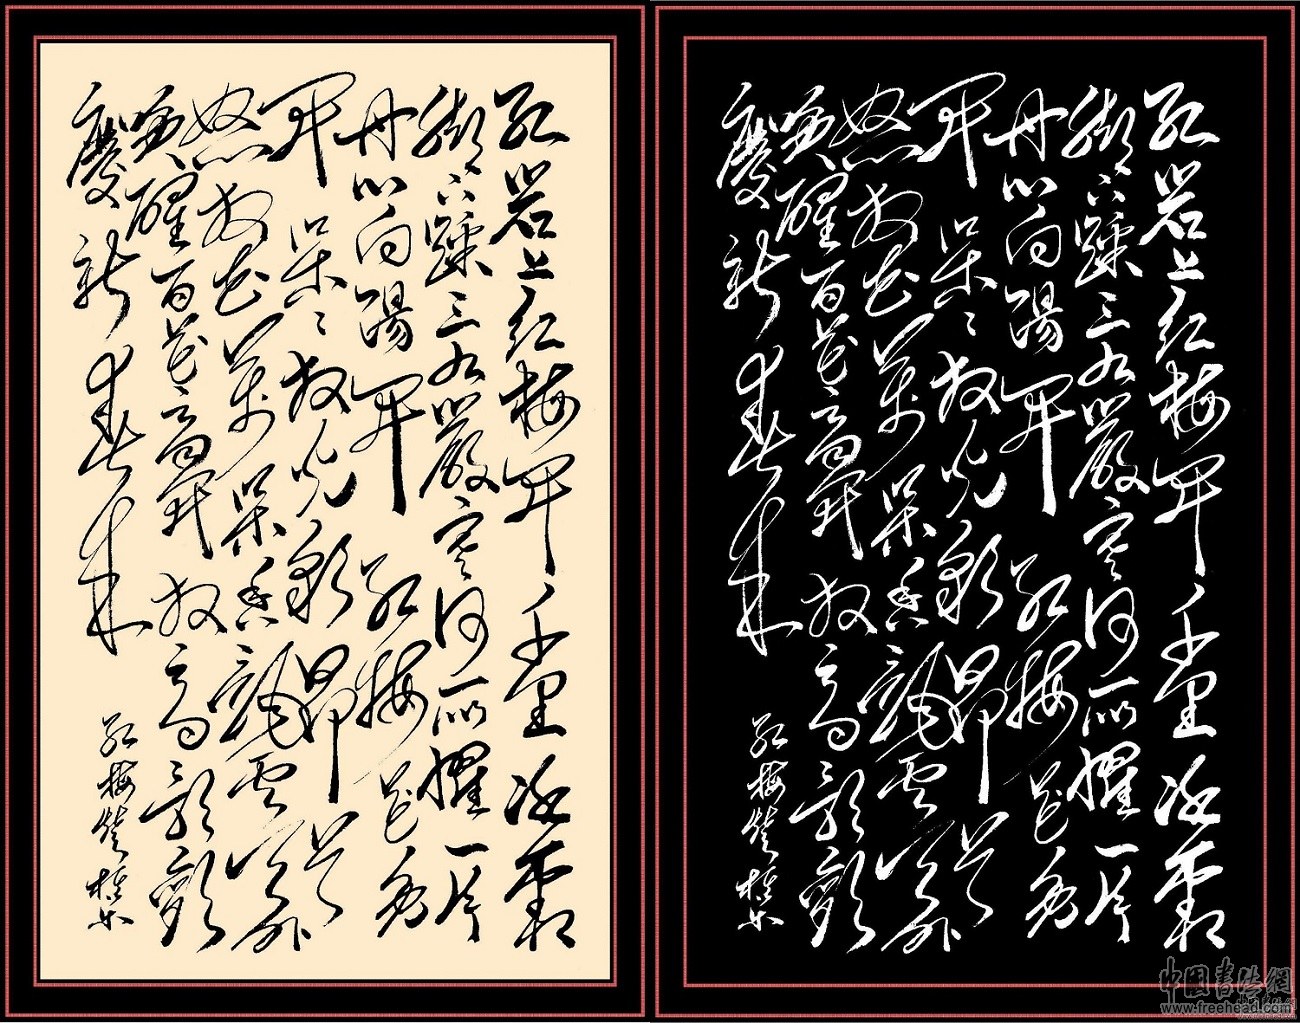 红岩上红梅开千里冰霜
脚下踩三九嚴寒何所懼一片
丹心向陽开红梅花兒
开朵々放光彩昂首
怒放花萬朵香飄雲天外
唤醒百花齊开放高歌歡
慶新春来
红梅赞
红岩上红梅开千里冰霜
脚下踩三九嚴寒何所懼一片
丹心向陽开红梅花兒
开朵々放光彩昂首
怒放花萬朵香飄雲天外
唤醒百花齊开放高歌歡
慶新春来
红梅赞
中國書法網
www.freehead.com